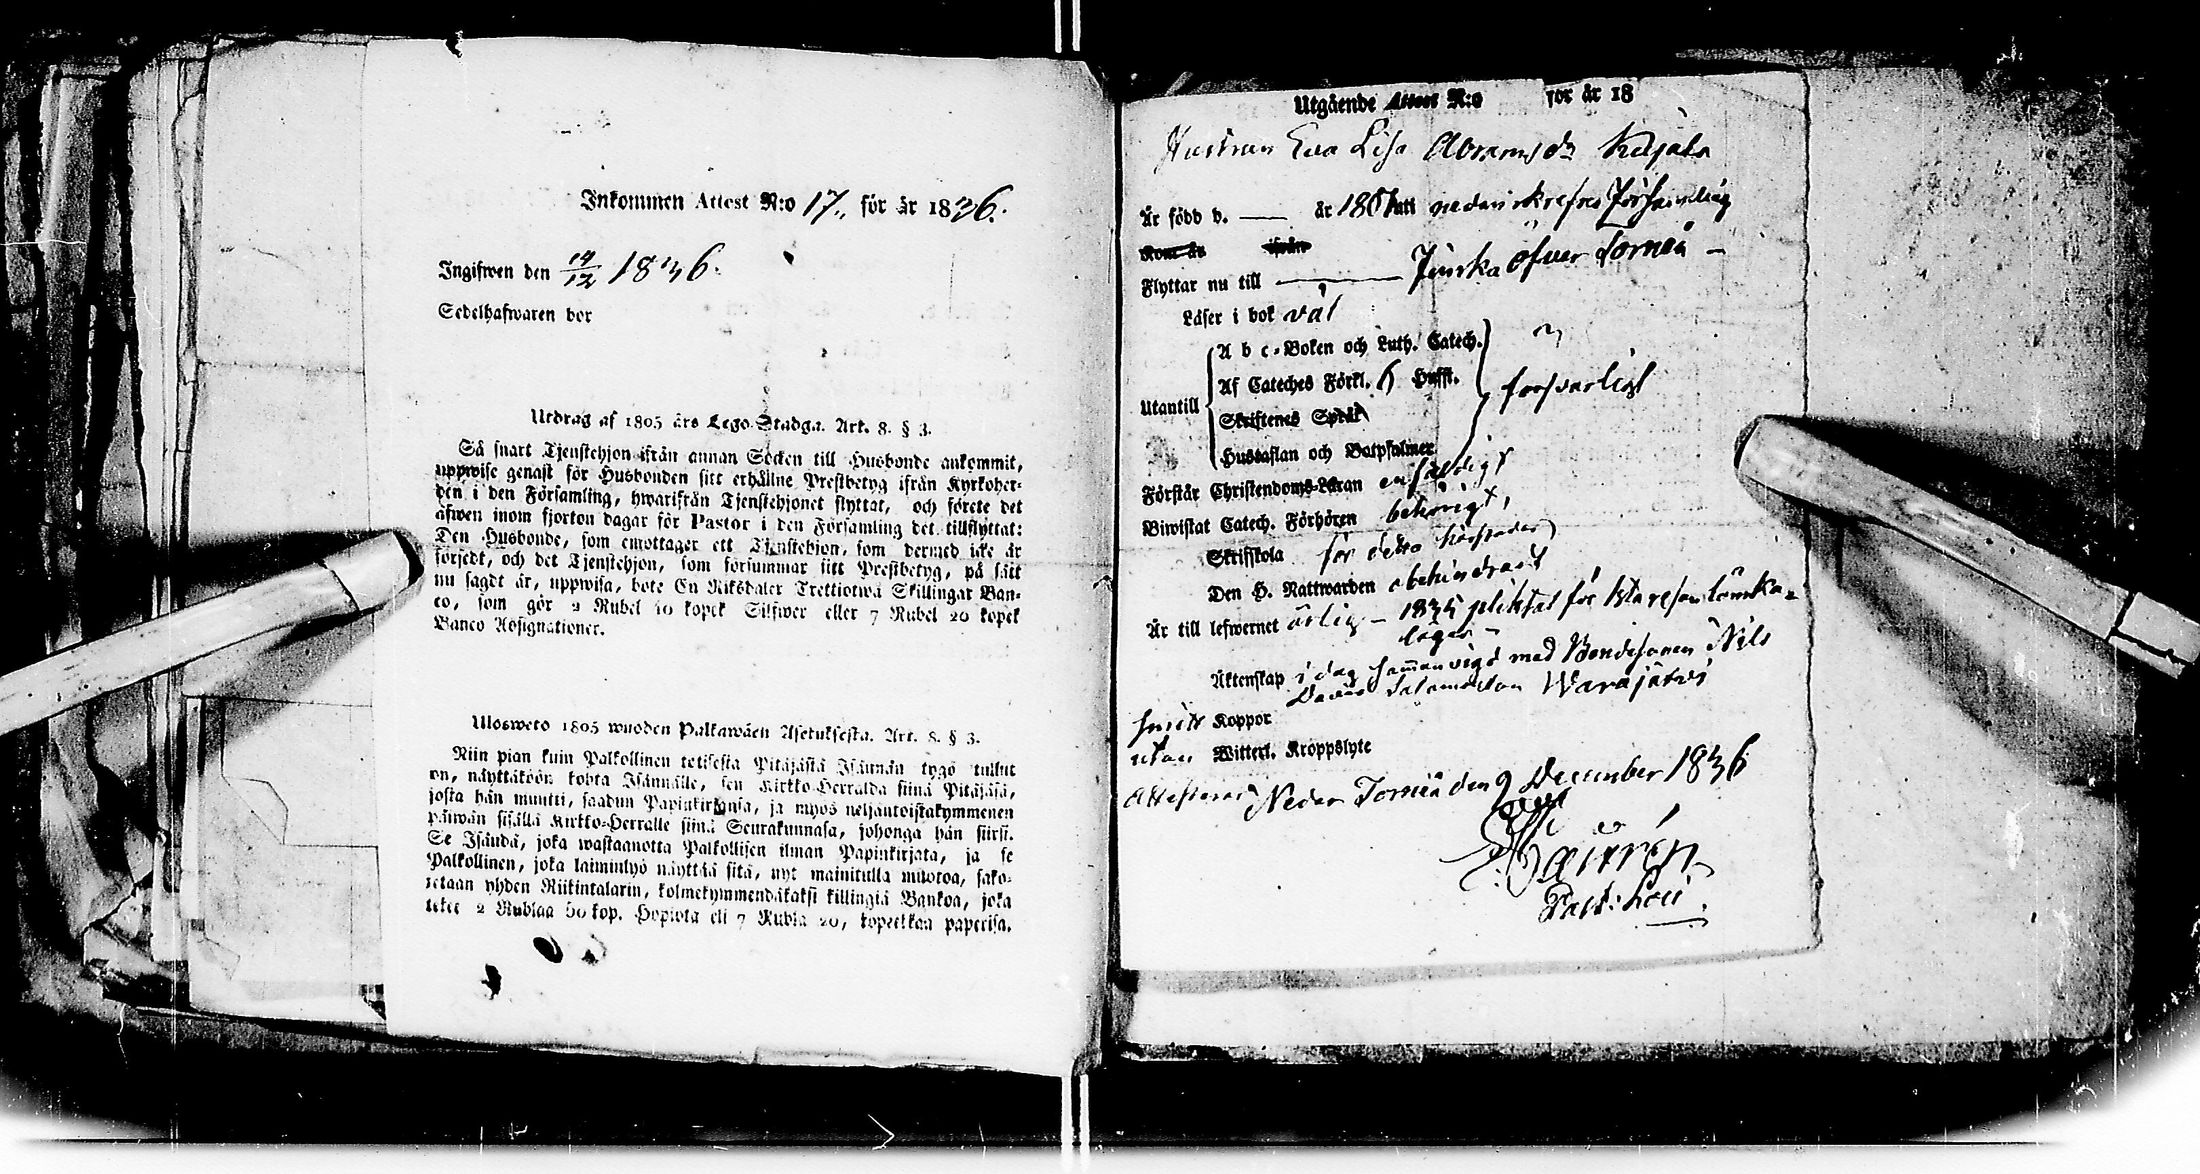 Inkommen Attest N:o 17. för år 1836.
Ingifwen den 14/12 1836.
Sedelhafwaren bor
Utdrag af 1805 års Lego-Stadga. Art. 8. § 3.
Så snart Tjenstehjon ifrån annan Socken till Husbonde ankommit,
uppwise genast för Husbonden sitt erhållne Prestbetyg ifrån Kyrkoher-
den i den Församling, hwarifrån Tjenstehjonet flyttat, och förete det
äfwen inom fjorton dagar för Pastor i den Församling det tillflyttat:
Den Husbonde, som emottager ett Tjenstehjon, som dermed icke är
försedt, och det Tjenstehjon, som försummar sitt Prestbetyg, på sätt
nu sagdt är, uppwisa, bote En Riksdaler Trettiotwå Skillingar Ban-
co, som gör 2 Rubel 10 kopek Silfwer eller 7 Rubel 20 kopek
Banco Assignationer.
Ulosweto 1805 wuoden Palkawäen Asetuksesta. Art. 8. § 3.
Niin pian kuin Palkollinen toisesta Pitäjästä Isännän tygö tullut
on, näyttäköön kohta Isännälle, sen Kirkko-Herralda siinä Pitäjäsä,
josta hän muutti, saadun Papinkirjansa, ja myös neljäntoistakymmenen
päiwän sisällä Kirkko-Herralle siinä Seurakunnasa, johonga hän siirsi.
Se Isändä, joka wastaanotta Palkollisen ilman Papinkirjata, ja se
Palkollinen, joka laiminlyö näyttää sitä, nyt mainitulla muotoa, sako-
tetaan yhden Riikintalarin, kolmekymmendäkaksi killingiä Bankoa, joka
tekee 2 Rublaa 10 kop. Hopiota eli 7 Rubla 20, kopeekkaa paperisa.
Utgående Attest N:o för år 18
Hustrun Eva Lisa Abramsdr
Är född d. — år 1807 uti nedanskrefne Församling
Kom år ifrån
Flyttar nu till — Juska Öfver Torneå —
Läser i bok väl
Utantill
A b c-Boken och Luth. Catech.
Af Cateches Förkl. Husfl.
Skriftenes Språk
Hustaflan och Botpsalmer
försvarligt
Förstår Christendoms-Läran enfäldigt
Biwistat Catech. Förhören behörigt,
Skriftskola för detta
Den H. Nattwarden obehindradt
Är till lefwernet ärlig — 1835 pliktat för
läger —
Äktenskap i dag sammanvigd med Bondesonen Nils
David Salomonsson Warajärvi
Koppor
utan Witterl. Kroppslyte
Attesterar Neder Torneå den 9 December 1836
Past: Loci.